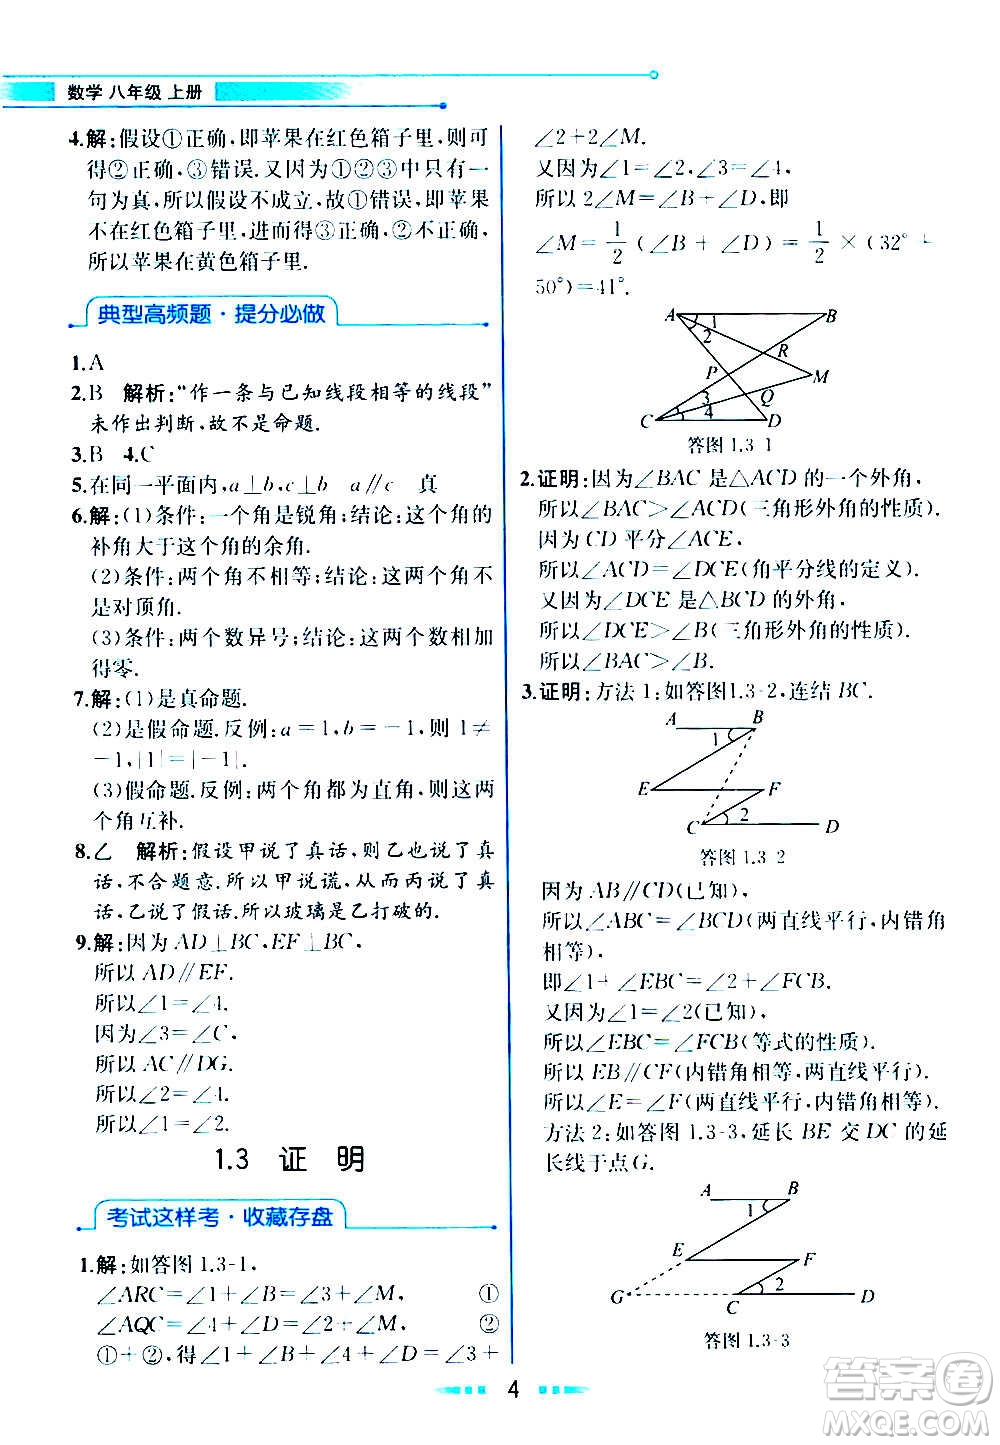 数学 八年级 上册
4.解:假设①正确,即苹果在红色箱子里,则可
得②正确,③错误.又因为①②③中只有一
句为真,所以假设不成立,故①错误,即苹果
不在红色箱子里,进而得③正确,②不正确,
所以苹果在黄色箱子里.
典型高频题·提分必做
1.A
2.B 解析:“作一条与已知线段相等的线段”
未作出判断,故不是命题.
3.B 4.C
5.在同一平面内,a⊥b,c⊥b a∥c 真
6.解:(1)条件:一个角是锐角;结论:这个角的
补角大于这个角的余角.
(2)条件:两个角不相等;结论:这两个角不
是对顶角.
(3)条件:两个数异号;结论:这两个数相加
得零.
7.解:(1)是真命题.
(2)是假命题.反例:a=1,b=-1,1≠
-1,|1|=|-1|.
(3)假命题.反例:两个角都为直角,则这两
个角互补.
8.乙 解析:假设甲说了真话,则乙也说了真
话,不合题意.所以甲说谎,从而两说了真
话,乙说了假话.所以玻璃是乙打破的.
9.解:因为AD⊥BC,EF⊥BC,
所以AD∥EF.
所以∠1=∠4.
因为∠3=∠C,
所以AC∥DG.
所以∠2=∠4.
所以∠1=∠2.
1.3 证 明
考试这样考·收藏存盘
1.解:如答图1.3-1,
∠ARC=∠1+∠B=∠3+∠M, ①
∠AQC=∠1+∠2+∠M, ②
①+②,得∠1+∠B+∠4+∠D=∠3+
∠2+2∠M.
又因为∠1=∠2,∠3=∠4,
所以2∠M=∠B+∠D,即
∠M=1/2(∠B+∠D)=1/2×(32°+
50°)=41°.
A 1 2 B
R
P M
3 Q
C 4 D
答图1.3-1
2.证明:因为∠BAC是△ACD的一个外角,
所以∠BAC>∠ACD(三角形外角的性质).
因为CD平分∠ACE,
所以∠ACD=∠DCE(角平分线的定义).
又因为∠DCE是△BCD的外角,
所以∠DCE>∠B(三角形外角的性质).
所以∠BAC>∠B.
3.证明:方法1:如答图1.3-2,连结BC.
A B
1
E F
C 2 D
答图1.3-2
因为AB∥CD(已知),
所以∠ABC=∠BCD(两直线平行,内错角
相等),
即∠1+∠EBC=∠2+∠FCB.
又因为∠1=∠2(已知),
所以∠EBC=∠FCB(等式的性质).
所以EB∥CF(内错角相等,两直线平行).
所以∠E=∠F(两直线平行,内错角相等).
方法2:如答图1.3-3,延长BE交DC的延
长线于点G.
A B
1
E F
2
G C D
答图1.3-3
4
答案圈
MXQE.COM